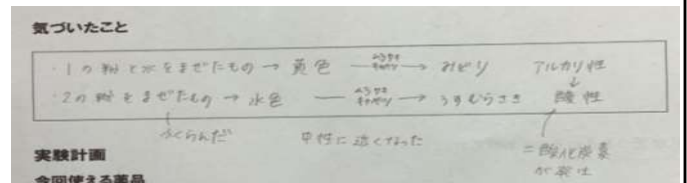 気づいたこと
・1の粉と水をまぜたもの → 黄色 ―ムラサキキャベツ→ みどり アルカリ性
↓
・2の粉をまぜたもの → 水色 ―ムラサキキャベツ→ うすむらさき 酸性
ふくらんだ 中性に近くなった
二酸化炭素
が発生
実験計画
今回使える薬品